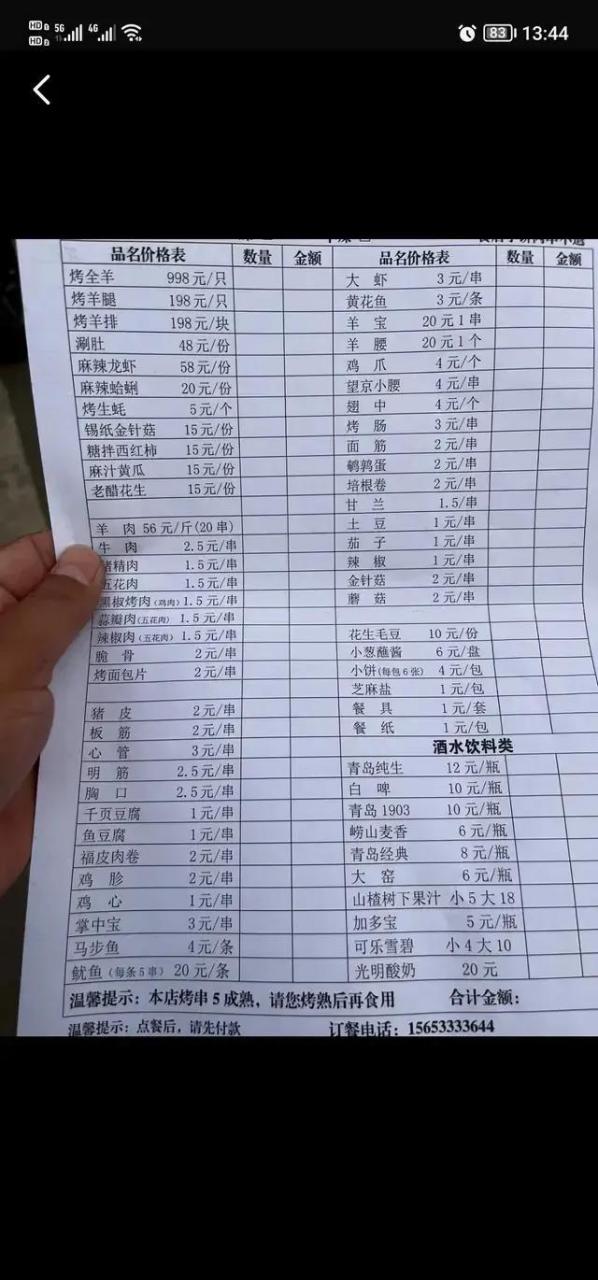 HD 1 5G 4G 83 13:44
HD 2
品名价格表 数量 金额
烤全羊 998元/只
烤羊腿 198元/只
烤羊排 198元/块
涮肚 48元/份
麻辣龙虾 58元/份
麻辣蛤蜊 20元/份
烤生蚝 5元/个
锡纸金针菇 15元/份
糖拌西红柿 15元/份
麻汁黄瓜 15元/份
老醋花生 15元/份
羊肉 56元/斤(20串)
牛肉 2.5元/串
猪精肉 1.5元/串
五花肉 1.5元/串
黑椒烤肉(鸡肉) 1.5元/串
蒜瓣肉(五花肉) 1.5元/串
辣椒肉(五花肉) 1.5元/串
脆骨 2元/串
烤面包片 2元/串
猪皮 2元/串
板筋 2元/串
心管 3元/串
明筋 2.5元/串
胸口 2.5元/串
千页豆腐 1元/串
鱼豆腐 1元/串
福皮肉卷 2元/串
鸡胗 2元/串
鸡心 1元/串
掌中宝 3元/串
马步鱼 4元/条
鱿鱼(每条5串) 20元/条
品名价格表 数量 金额
大虾 3元/串
黄花鱼 3元/条
羊宝 20元1串
羊腰 20元1个
鸡爪 4元/个
望京小腰 4元/串
翅中 4元/个
烤肠 3元/串
面筋 2元/串
鹌鹑蛋 2元/串
培根卷 2元/串
甘兰 1.5/串
土豆 1元/串
茄子 1元/串
辣椒 1元/串
金针菇 2元/串
蘑菇 2元/串
花生毛豆 10元/份
小葱蘸酱 6元/盘
小饼(每包6张) 4元/包
芝麻盐 1元/包
餐具 1元/套
餐纸 1元/包
酒水饮料类
青岛纯生 12元/瓶
白啤 10元/瓶
青岛1903 10元/瓶
崂山麦香 6元/瓶
青岛经典 8元/瓶
大窑 6元/瓶
山楂树下果汁 小5大18
加多宝 5元/瓶
可乐雪碧 小4大10
光明酸奶 20元
温馨提示：本店烤串5成熟，请您烤熟后再食用 合计金额：
温馨提示：点餐后，请先付款 订餐电话：15653333644